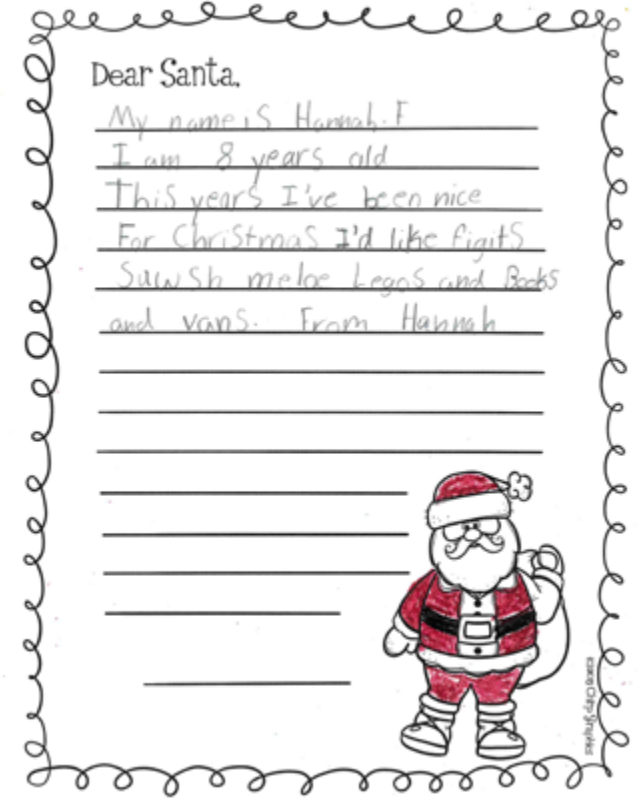 Dear Santa,
My name is Hannah. F
I am 8 years old
This years I've been nice
For Christmas I'd like figits
meloe Legos and Books
and vans. From Hannah